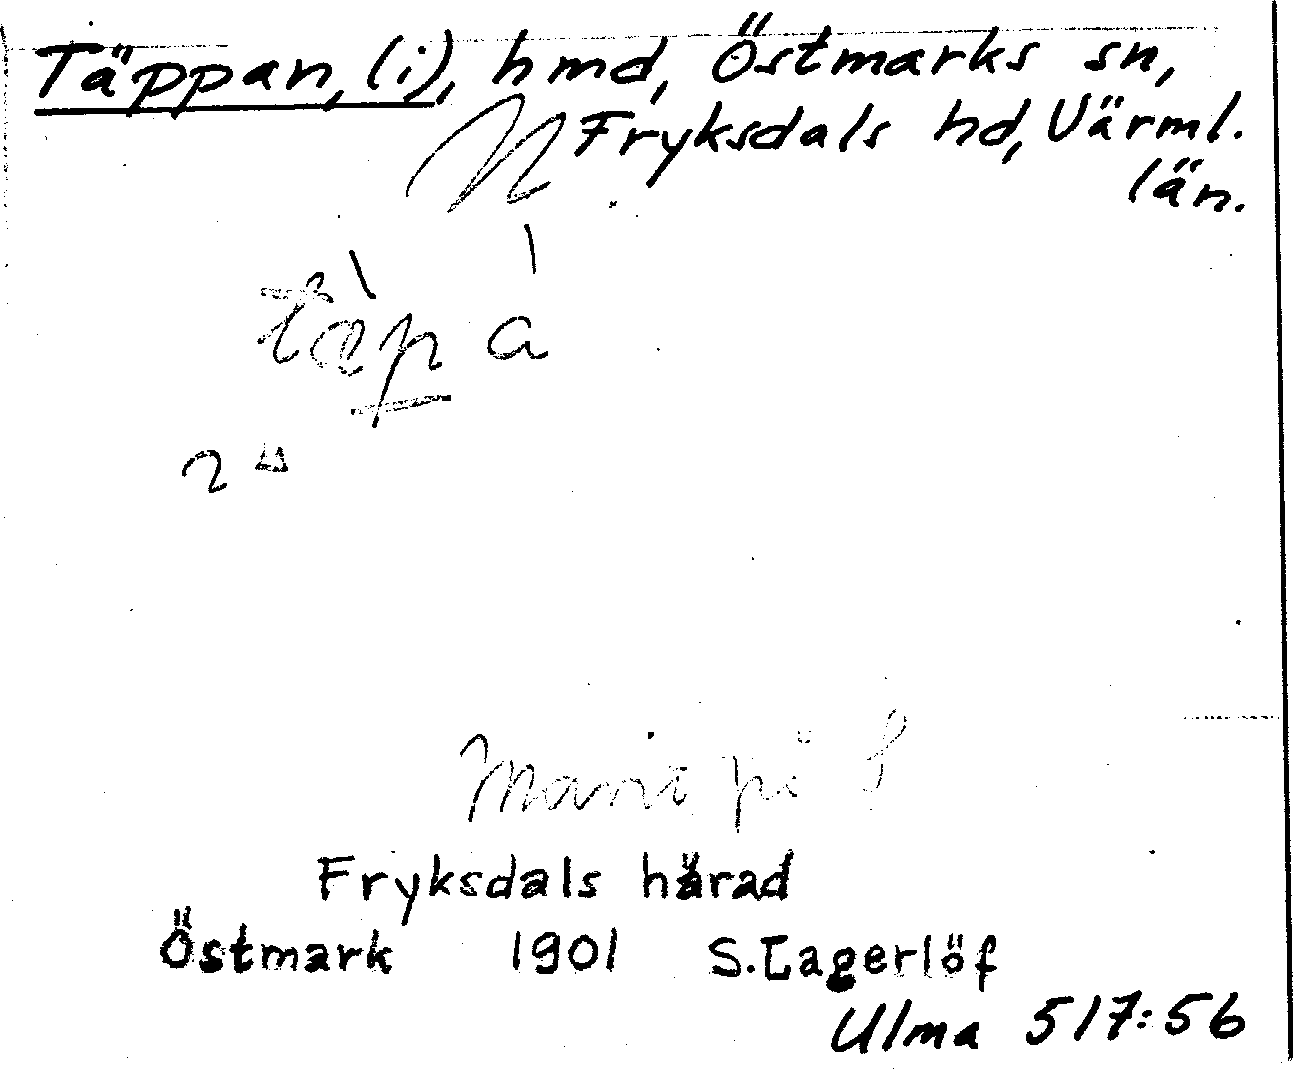 Täppan, (i), hmd, Östmarks sn,
Fryksdals hd, Värml.
län.
Fryksdals härad
Östmark 1901 S. Lagerlöf
Ulma 517:56